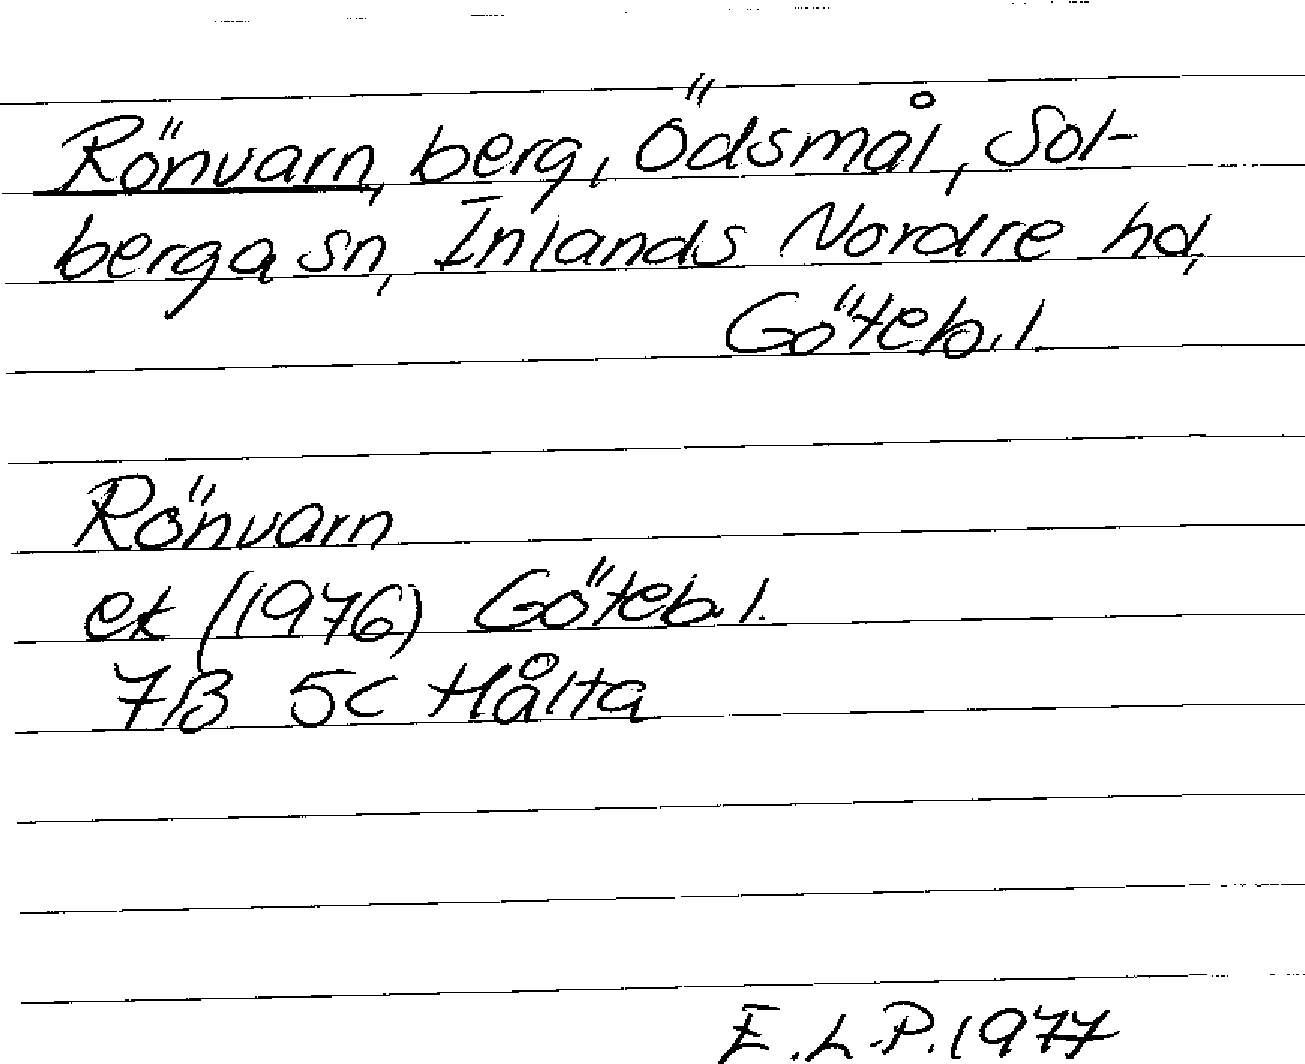 Rönvarn, berg, Ödsmål, Sol-
berga sn, Inlands Nordre hd,
Göteb.l.
Rönvarn
ek (1976) Göteb.l.
7B 5c Hålta
E.L.P. 1977